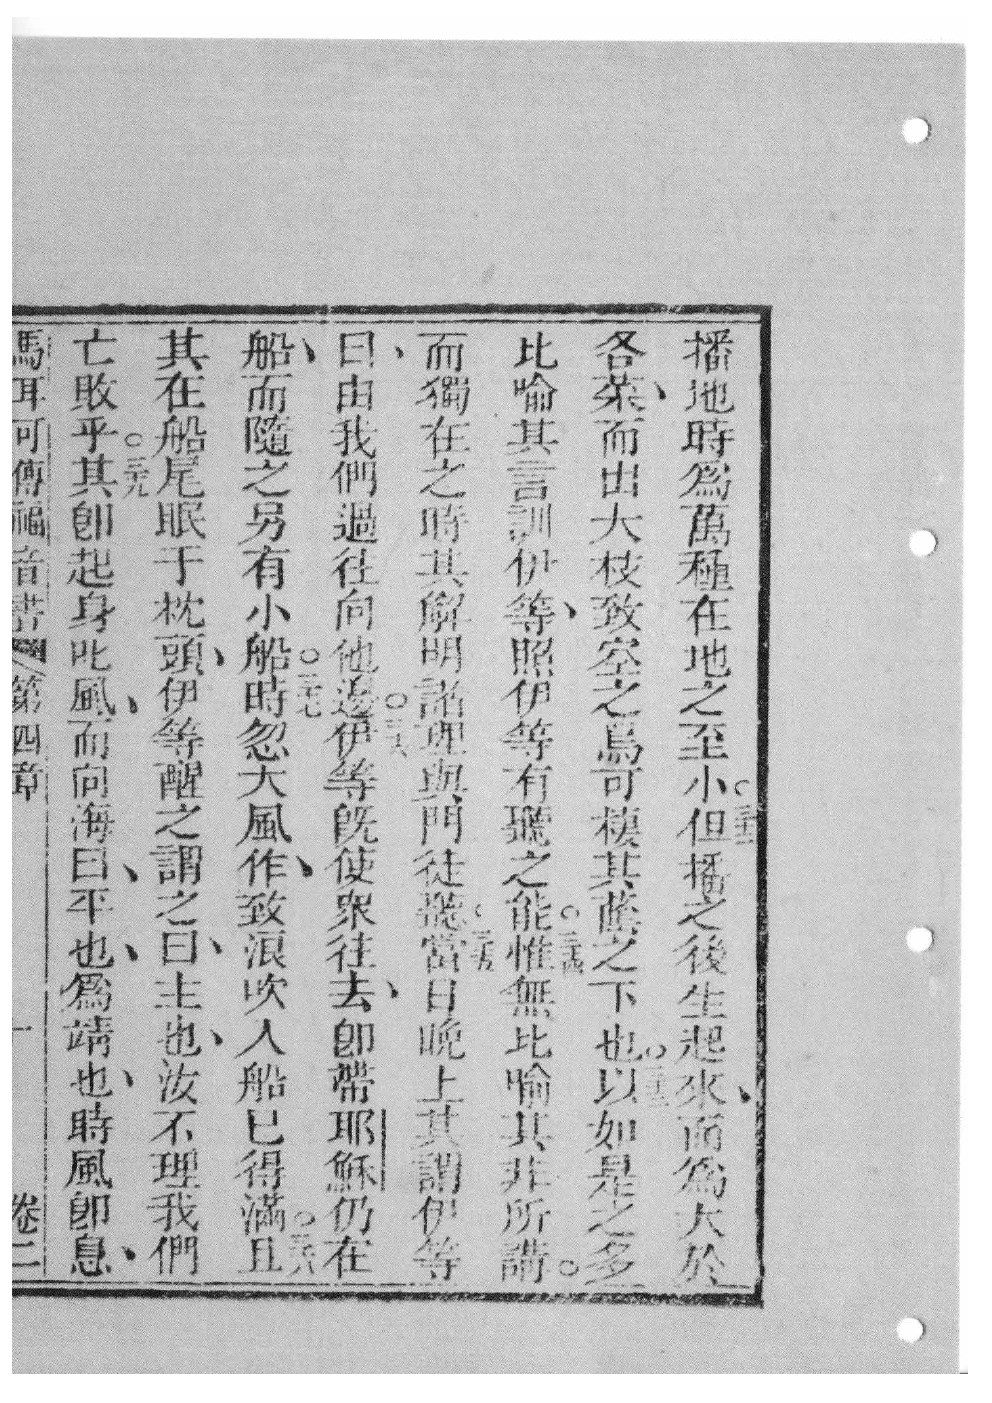 播地時爲萬種在地之至小○三十二但播之後生起來、而爲大於
各菜、而出大枝致空之鳥可棲其蔭之下也○三十三以如是之多
比喻其言訓伊等、照伊等有聽之能○三十四惟無比喻其非所講○
而獨在之時其解明諸理與門徒聽○三十五當日晚上其謂伊等
曰、由我們過往向他邊○三十六伊等既使衆往去、卽帶耶穌仍在
船、而隨之另有小船○三十七時忽大風作、致浪吹入船已得滿○三十八且
其在船尾眠于枕頭、伊等醒之謂之曰、主也、汝不理我們
亡敗乎○三十九其卽起身叱風、而向海曰、平也、爲靖也、時風卽息、
馬耳可傳福音書 第四章 一 卷二